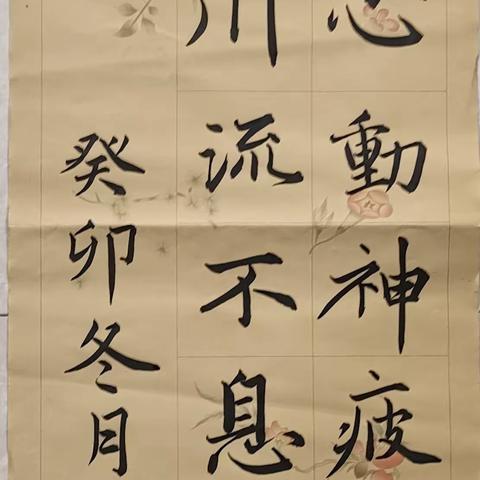 心動神疲
川流不息
癸卯冬月